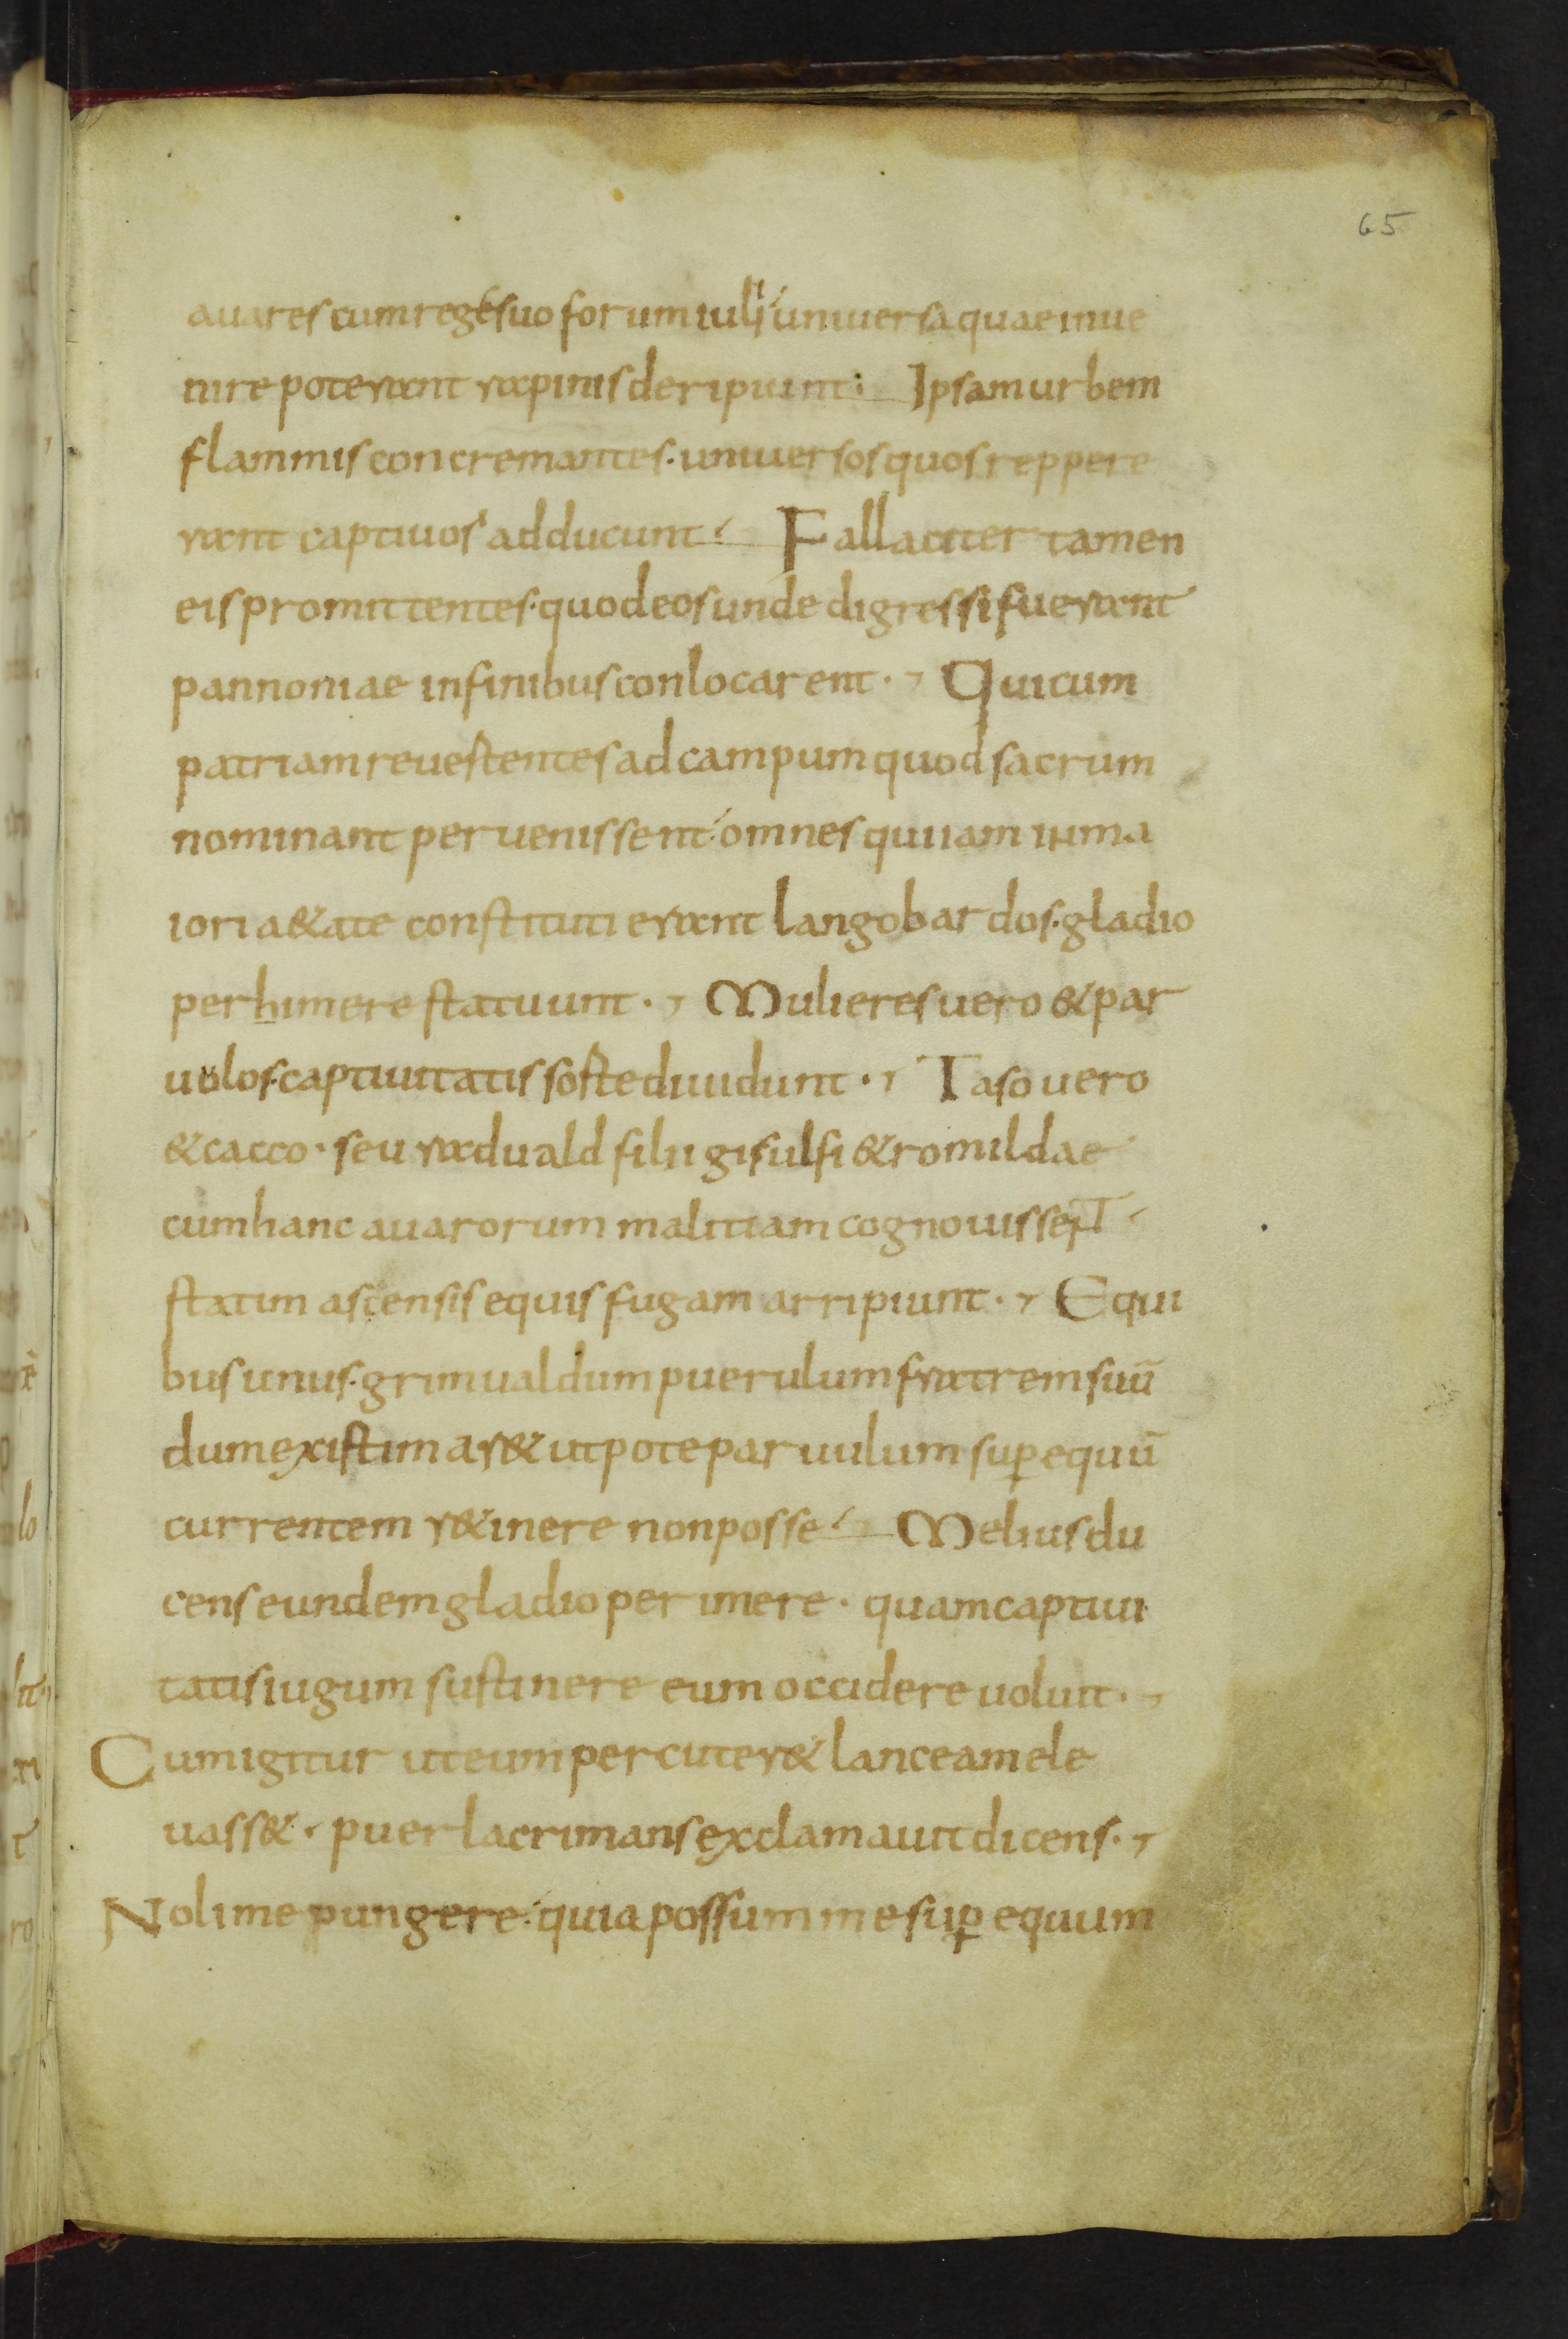 65
auares cum rege suo forum iulii universa quae inue
nire poterant rapinis deripiunt: Ipsam urbem
flammis concremantes. uniuersos quos reppere
rant captiuos adducunt. Fallaciter tamen
eis promittentes. quod eos unde digressi fuerant
pannoniae in finibus conlocarent. Qui cum
patriam reuertentes ad campum quod sacrum
nominant peruenissent. omnes qui iam in ma
iori a&ate constituti erant langobardos. gladio
perhimere statuunt. Mulieres uero & par
uulos. captiuitatis sorte diuidunt. Taso uero
& cacco. seu raduald filii gisulfi & romildae
cum hanc auarorum malitiam cognouissent
statim ascensis equis fugam arripiunt. E qui
bus unus. grimualdum puerulum fratrem suū
dum existimar& utpote paruulum sup̱ equū
currentem r&inere non posse. Melius du
cens eundem gladio perimere. quam captiui
tatis iugum sustinere eum occidere uoluit.
Cum igitur ut eum percuter& lanceam ele
uass&. puer lacrimans exclamauit dicens.
Noli me pungere. quia possum me sup̱ equum